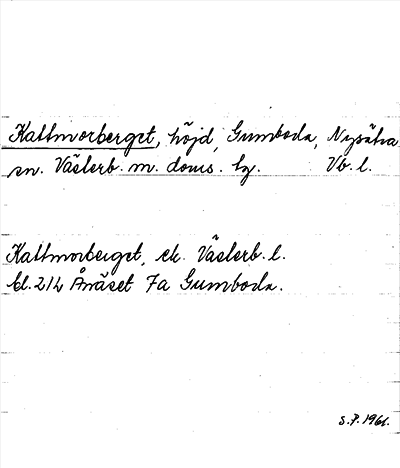 Kattmorberget, höjd, Gumboda, Nysätra
sn. Västerb. m. doms. tg. Vb. l.
Kattmorberget, ek. Västerb. l.
bl. 21h Ånäset 7a Gumboda.
S.P. 1961.